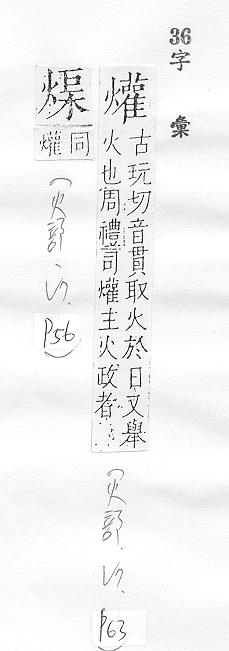 36 字彙
爟
古玩切音貫取火於日又舉
火也周禮司爟主火政者
(火部. P63)
同爟
(火部. P56)